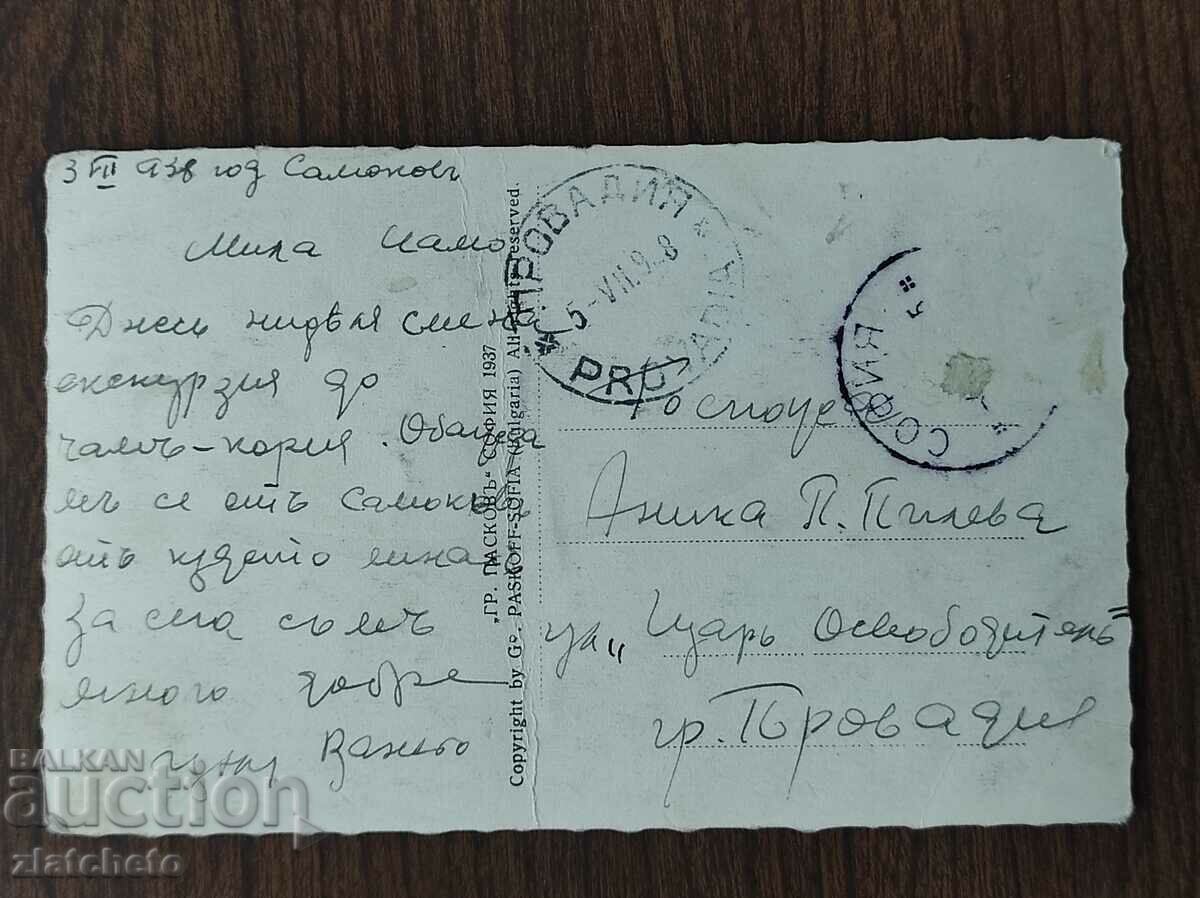 3 VII 938 год Самоковъ
Мила Мамо
Днесъ нидѣля сме на
екскурзия до
Чамъ-кория. Обажда
мъ се отъ Самоковъ
отъ кѫдето мина
За сега съмъ
много добре
Ваньо
„ГР. ПАСКОВЪ“ СОФИЯ 1937
Copyright by Gr. PASKOFF-SOFIA (Bulgaria) All rights reserved.
ПРОВАДИЯ
5-VII.9 8
PROVADIA
СОФИЯ
Госпоца
Аника П. Пилева
ул „Царь Освободитель“
гр. Провадия
BALKAN
auction
zlatcheto